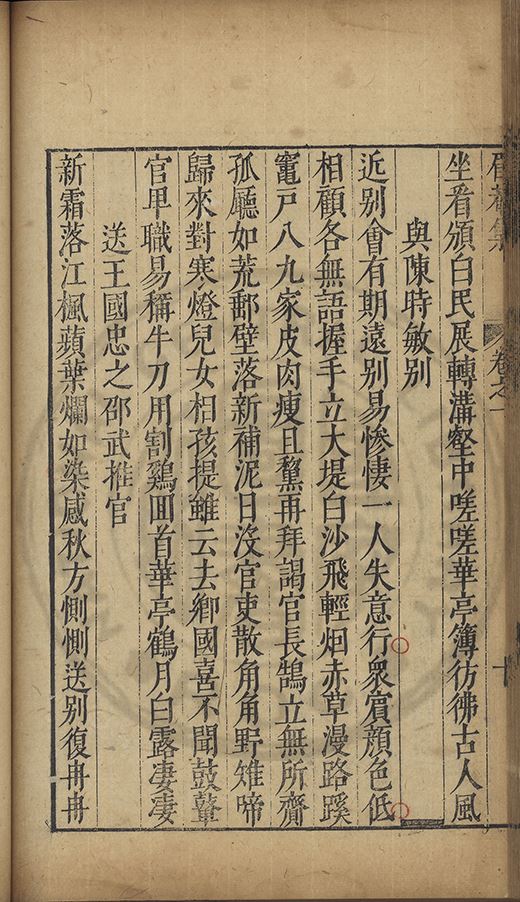 卷之一
坐看頒白民展轉溝壑中嗟嗟華亭簿彷彿古人風
與陳時敏別
近别會有期遠别易慘悽一人失意行衆賓顔色低
相顧各無語握手立大堤白沙飛輕烟赤草漫路蹊
竃戸八九家皮肉瘦且黧再拜謁官長鵠立無所齎
孤廳如荒郵壁落新補泥日沒官吏散角角野雉啼
歸來對寒燈兒女相孩提雖云去鄉國喜不聞鼓鼙
官卑職易稱牛刀用割鷄囬首華亭鶴月白露凄凄
送王國忠之邵武推官
新霜落江楓蘋葉爛如染感秋方惻惻送别復冉冉